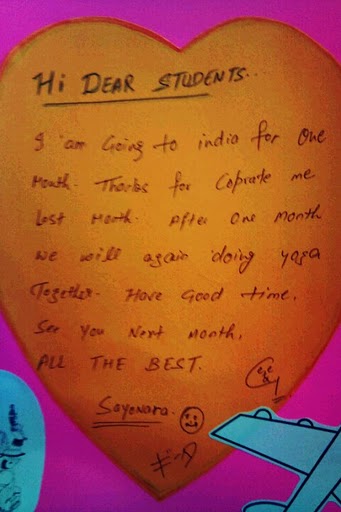 Hi DEAR STUDENTS..
I am Going to india for One
Month. Thanks for Coprate me
Last Month. After One Month
we will again doing yoga
Together. Have Good time.
See You Next Month.
ALL THE BEST.
Sayonara.